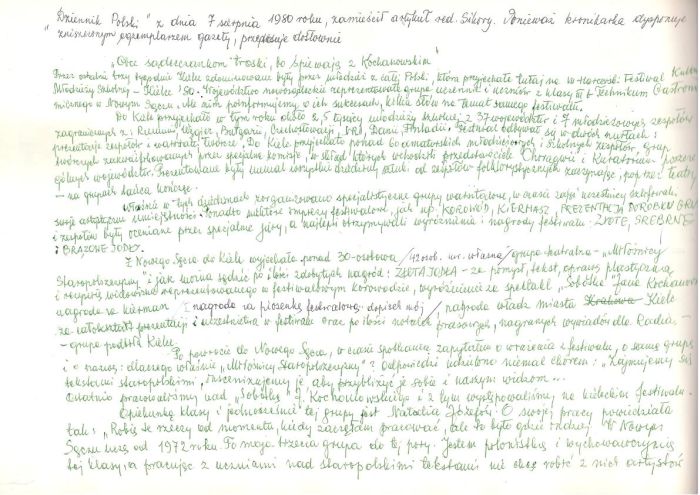 "Dziennik Polski" z dnia 7 sierpnia 1980 roku, zamieścił artykuł red. Sikory. Ponieważ kronikarka dysponuje
zniszczonym egzemplarzem gazety, przepisuje dosłownie
"Obce sądeczankom troski, bo śpiewają z Kochanowskim"
Przez ostatnie trzy tygodnie Kielce zdominowane były przez młodzież z całej Polski, która przyjechała tutaj na Harcerski Festiwal Kultury
Młodzieży Szkolnej - Kielce '80. Województwo nowosądeckie reprezentowała grupa uczennic i uczniów z klasy III Technikum Gastrono-
micznego w Nowym Sączu. Nim poinformujemy o ich sukcesach, kilka słów na temat samego festiwalu.
Do Kielc przyjechało w tym roku około 2,5 tysiąca młodzieży szkolnej z 37 województw i 7 młodzieżowych zespołów
zagranicznych z: Rumunii, Węgier, Bułgarii, Czechosłowacji, NRD, Danii, Finlandii. Festiwal odbywał się w dwóch nurtach:
prezentacje zespołów i warsztaty twórcze. Do Kielc przyjechało ponad 60 amatorskich młodzieżowych i szkolnych zespołów, grup
twórczych zakwalifikowanych przez specjalne komisje, w skład których wchodzili przedstawiciele Chorągwi i Kuratorium poszcze-
gólnych województw. Prezentowane były niemal wszystkie dziedziny sztuki od zespołów folklorystycznych zaczynając, poprzez teatry
- na grupach tańca kończąc.
Właśnie w tych dziedzinach zorganizowano specjalistyczne grupy warsztatowe, w czasie zajęć uczestnicy szlifowali
swoje artystyczne umiejętności. Ponadto niektóre imprezy festiwalowe, jak np. KOROWÓD, KIERMASZ, PREZENTACJA DOROBKU GRUP
i zespołów były oceniane przez specjalne jury, a najlepsi otrzymywali wyróżnienia i nagrody festiwalu: ZŁOTE, SREBRNE
i BRĄZOWE JODŁY.
Z Nowego Sącza do Kielc wyjechało ponad 30-osobowa /42 osob. wr. własna/ grupa teatralna - "Miłośnicy
Staropolszczyzny" i jak można sądzić po ilości zdobytych nagród: ZŁOTA JODŁA - za pomysł, tekst, oprawę plastyczną
i ekspresję widowiska reprezentowanego w festiwalowym korowodzie, wyróżnienie za spektakl "Sobótka" Jana Kochanowskiego
nagroda za kiermasz I nagroda za piosenkę festiwalową - dopisek mój/ nagroda władz miasta Krakowa Kielc
za całokształt prezentacji i uczestnictwa w festiwalu oraz po ilości notatek prasowych, nagranych wywiadów dla Radia -
- grupa podbiła Kielce.
Po powrocie do Nowego Sącza, w czasie spotkania zapytałem o wrażenia z festiwalu, o samą grupę
i o nazwę: dlaczego właśnie "Miłośnicy Staropolszczyzny"? Odpowiedzi udzielono niemal chórem: "Zajmujemy się
tekstami staropolskimi, inscenizujemy je, aby przybliżyć je sobie i naszym widzom...
Ostatnio pracowaliśmy nad "Sobótką" J. Kochanowskiego i z tym występowaliśmy na kieleckim festiwalu.
Opiekunką klasy i jednocześnie tej grupy jest Natalia Józefów. O swojej pracy powiedziała
tak: "Robię te rzeczy od momentu, kiedy zaczęłam pracować, ale to było gdzie indziej. W Nowym
Sączu uczę od 1972 roku. To moja trzecia grupa do tej pory. Jestem polonistką i wychowawczynią
tej klasy, a pracując z uczniami nad staropolskimi tekstami nie chcę robić z nich artystów